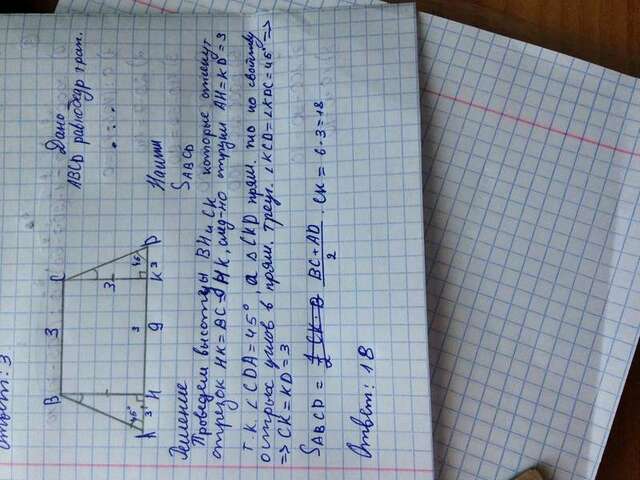 Ответ: 3
Дано
ABCD равнобедр трап.
Найти
S ABCD
B 3 C
3
45° 3 3 45° 3
A H 9 K D
Решение
Проведем высоты BH и CK которые отсекут
отрезок HK = BC = HK, след-но отрезки AH = KD = 3
т.к. ∠CDA = 45°, а △CKD прям. то по свойству
острых углов в прям. треуг. ∠KCD = ∠KDC = 45° =>
=> CK = KD = 3
S ABCD = BC + AD / 2 · CK = 6 · 3 = 18
Ответ: 18